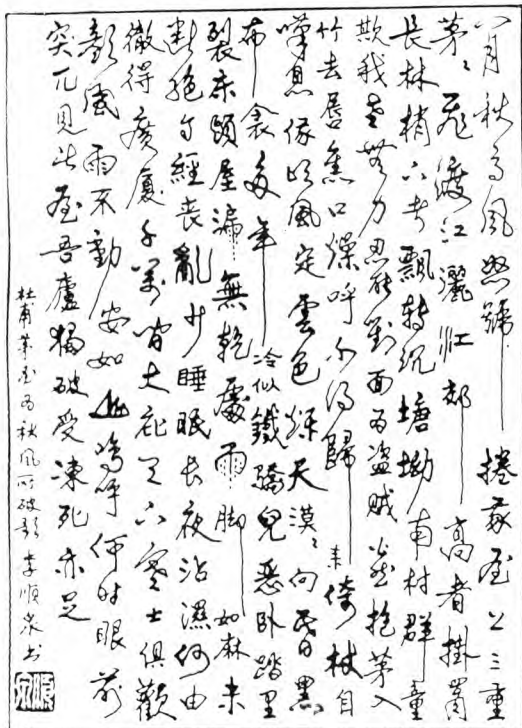 八月秋高風怒號捲我屋上三重
茅々飛渡江灑江郊高者掛罥
長林梢下者飄轉沉塘坳南村群童
欺我老無力忍能對面為盜賊公然抱茅入
竹去唇焦口燥呼不得歸来倚杖自
嘆息俄頃風定雲色秋天漠々向昏黑
布衾多年冷似鐵驕兒惡卧踏里
裂床頭屋漏無乾處雨脚如麻未
斷絶自經喪亂少睡眠長夜沾濕何由
徹得廣廈千萬間大庇天下寒士俱歡
顔風雨不動安如山嗚呼何時眼前
突兀見此屋吾廬獨破受凍死亦足
杜甫茅屋為秋風所破歌 李順泉书
順泉